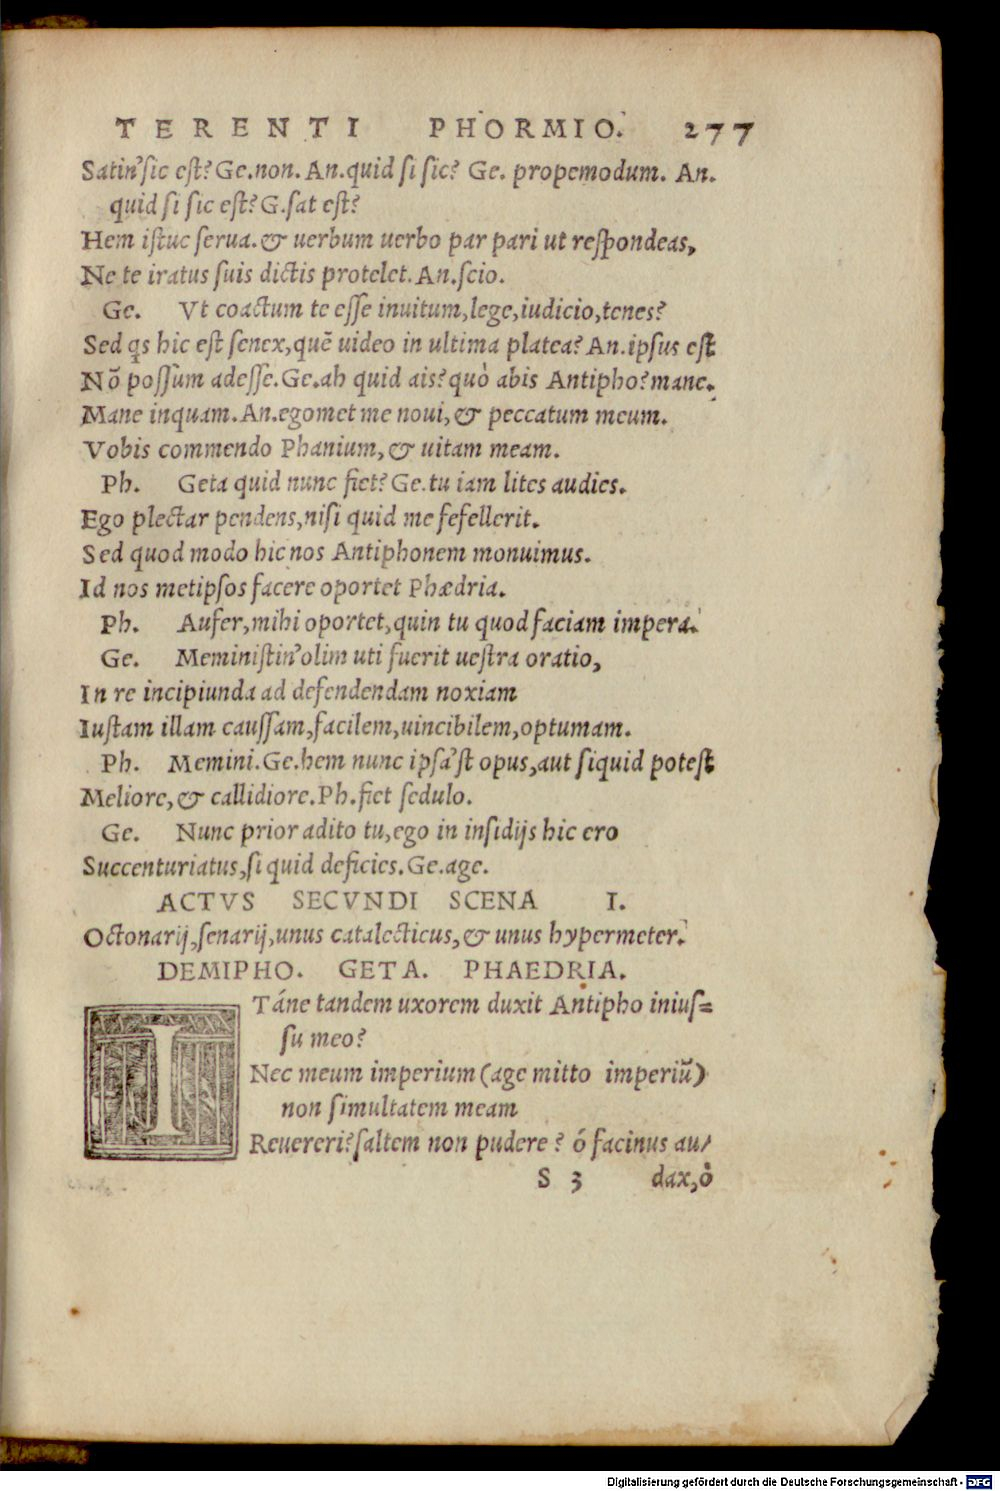 TERENTI PHORMIO. 277
Satin'sic est? Ge.non. An.quid si sic? Ge. propemodum. An.
quid si sic est? G.sat est?
Hem istuc serua.& uerbum uerbo par pari ut respondeas,
Ne te iratus suis dictis protelet. An.scio.
Ge. Vt coactum te esse inuitum,lege,iudicio,tenes?
Sed qs hic est senex,quē uideo in ultima platea? An.ipsus est
Nō possum adesse.Ge.ah quid ais?quò abis Antipho?mane.
Mane inquam.An.egomet me noui,& peccatum meum.
Vobis commendo Phanium,& uitam meam.
Ph. Geta quid nunc fiet? Ge.tu iam lites audies.
Ego plectar pendens,nisi quid me fefellerit.
Sed quod modo hic nos Antiphonem monuimus.
Id nos metipsos facere oportet Phædria.
Ph. Aufer,mihi oportet,quin tu quod faciam impera.
Ge. Meministin'olim uti fuerit uestra oratio,
In re incipiunda ad defendendam noxiam
Iustam illam caussam,facilem,uincibilem,optumam.
Ph. Memini.Ge.hem nunc ipsa'st opus,aut siquid potest
Meliore,& callidiore.Ph.fiet sedulo.
Ge. Nunc prior adito tu,ego in insidijs hic ero
Succenturiatus,si quid deficies.Ge.age.
ACTVS SECVNDI SCENA I.
Octonarij,senarij,unus catalecticus,& unus hypermeter.
DEMIPHO. GETA. PHAEDRIA.
ITáne tandem uxorem duxit Antipho inius=
su meo?
Nec meum imperium (age mitto imperiū)
non simultatem meam
Reuereri?saltem non pudere? ó facinus au/
S 3 dax,ò
Digitalisierung gefördert durch die Deutsche Forschungsgemeinschaft - DFG